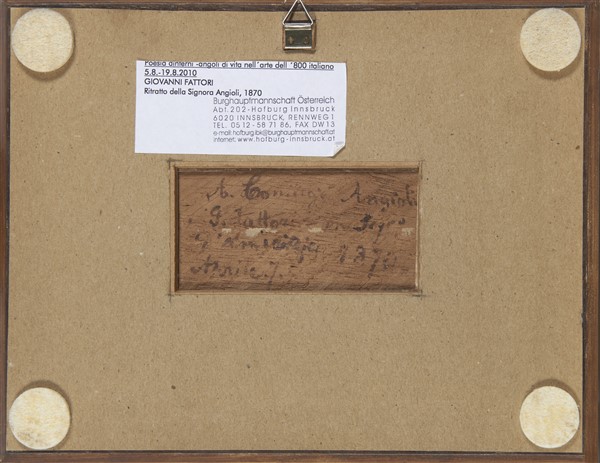 Poesia d'interni -angoli di vita nell´arte dell´800 italiano
5.8.-19.8.2010
GIOVANNI FATTORI
Ritratto della Signora Angioli, 1870
Burghauptmannschaft Österreich
Abt. 202 - Hofburg Innsbruck
6020 INNSBRUCK, RENNWEG 1
TEL. 0512 - 58 71 86, FAX DW 13
e-mail: hofburg.ibk@burghauptmannschaft.at
internet: www.hofburg-innsbruck.at
A. Angioli
G. Fattori
d'amicizia 1870
Aprile